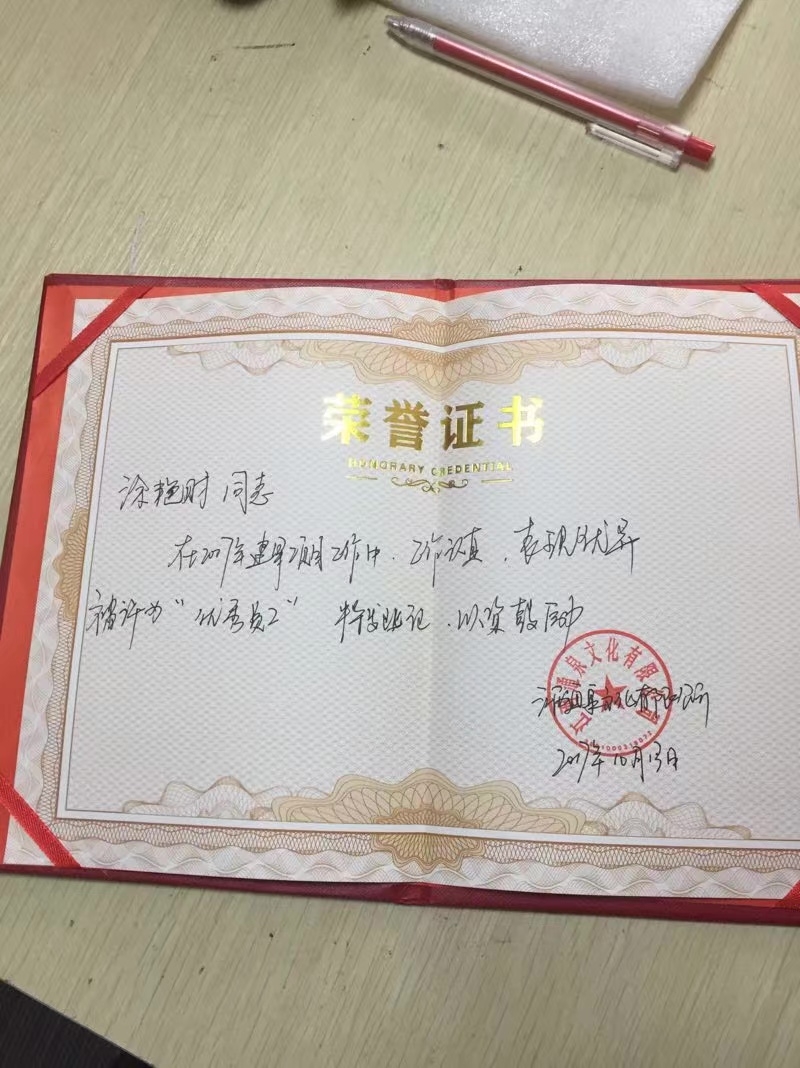 荣誉证书
HONORARY CREDENTIAL
涂艳财 同志
在2017年建军项目工作中、工作认真、表现优异
被评为“优秀员工” 特发此记、以资鼓励
泉文化有限公司
2017年10月13日